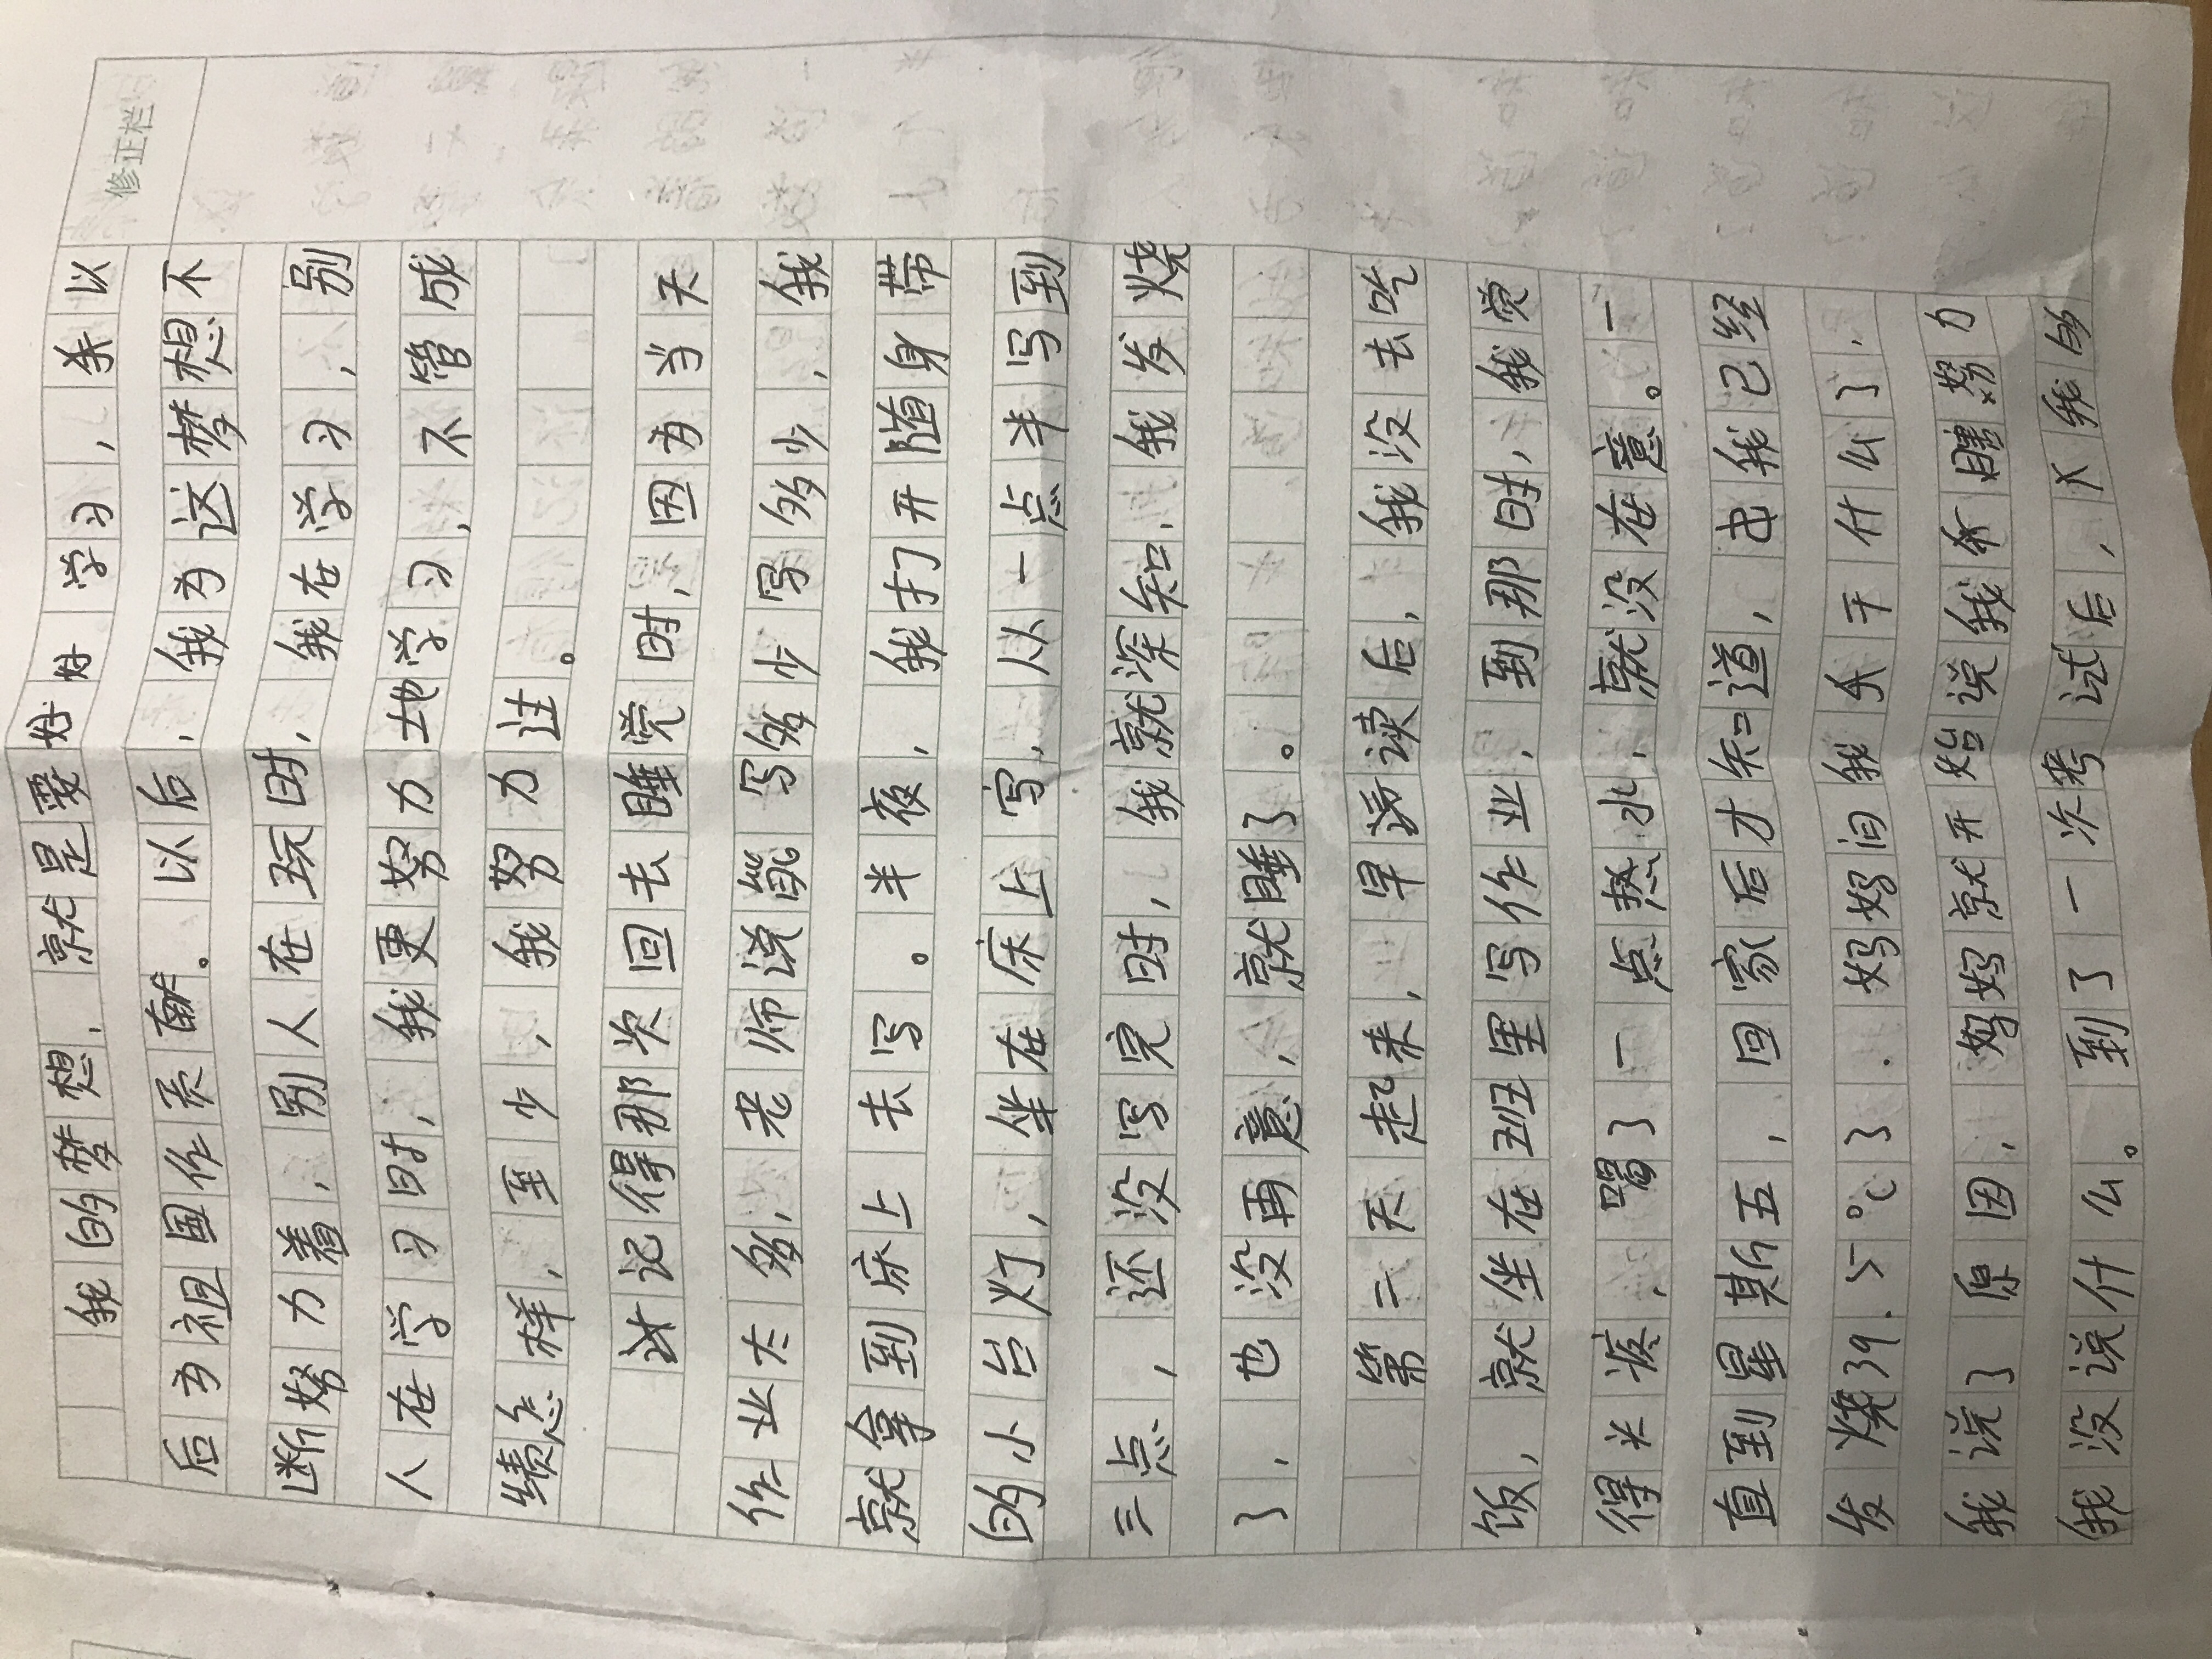 修正栏
我的梦想，就是要好好学习，来以
后为祖国作贡献。以后，我为这梦想不
断努力着，别人在玩时，我在学习，别
人在学习时，我更努力地学习，不管成
绩怎样，至少，我努力过。
记得那次回去睡觉时，因为当天
作业太多，老师说能写多少写多少，我
就拿到床上去写。半夜，我打开随身带
的小台灯，坐在床上写，从一点半写到
三点，还没写完时，我就深知，我发烧
了，也没再意，就睡了。
第二天起来，早读后，我没去吃
饭，就坐在班里写作业，到那时，我觉
得头疼，喝了一点热水，就没在意。一
直到星期五，回家后才知道，我已经
发烧39.5℃了.妈妈问我干什么了，
我说了原因，妈妈就开始说我瞎努力
我没说什么。到了一次考试后，我的